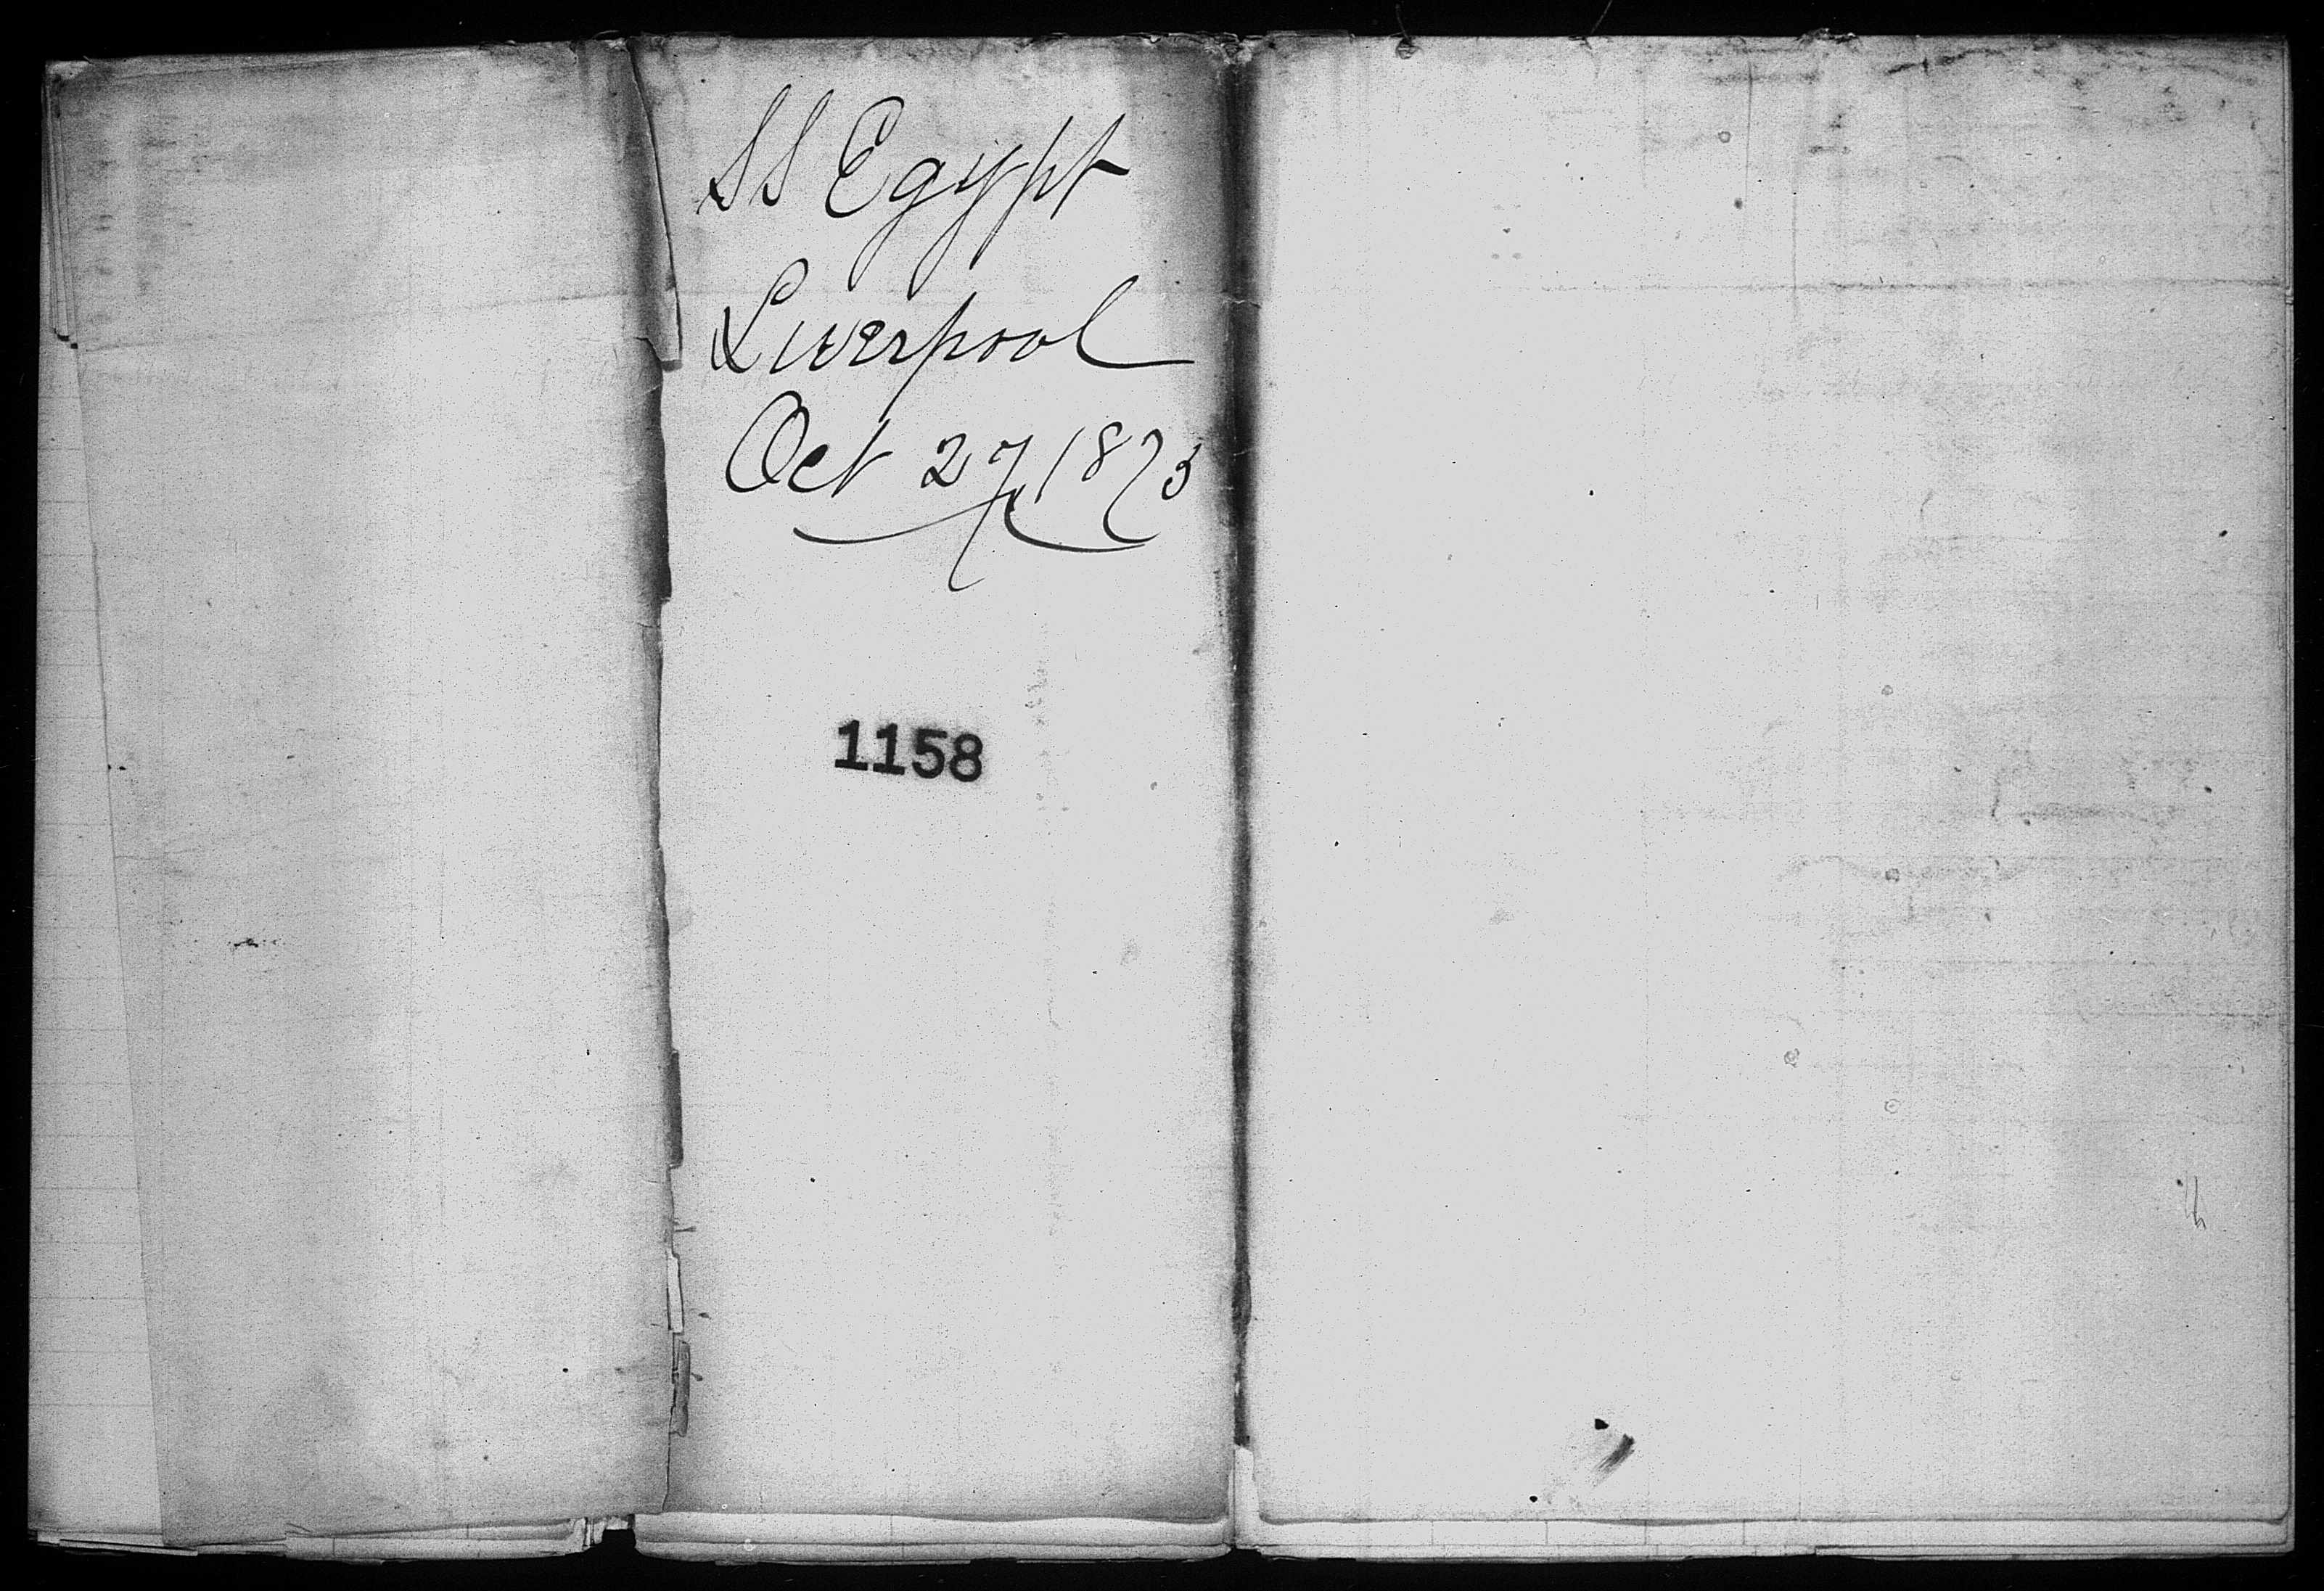 SS Egypt
Liverpool
Oct 27 1873
1158